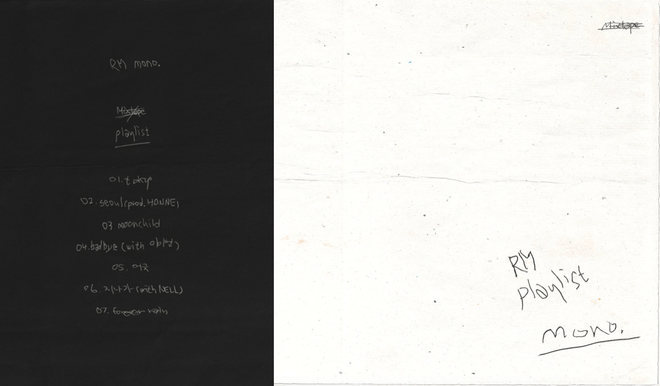 RM mono.
Mixtape
playlist
01. tokyo
02. seoul (prod. HONNE)
03. moonchild
04. badbye (with eAeon)
05. 어긋
06. 지나가 (with NELL)
07. forever rain
Mixtape
RM
playlist
mono.